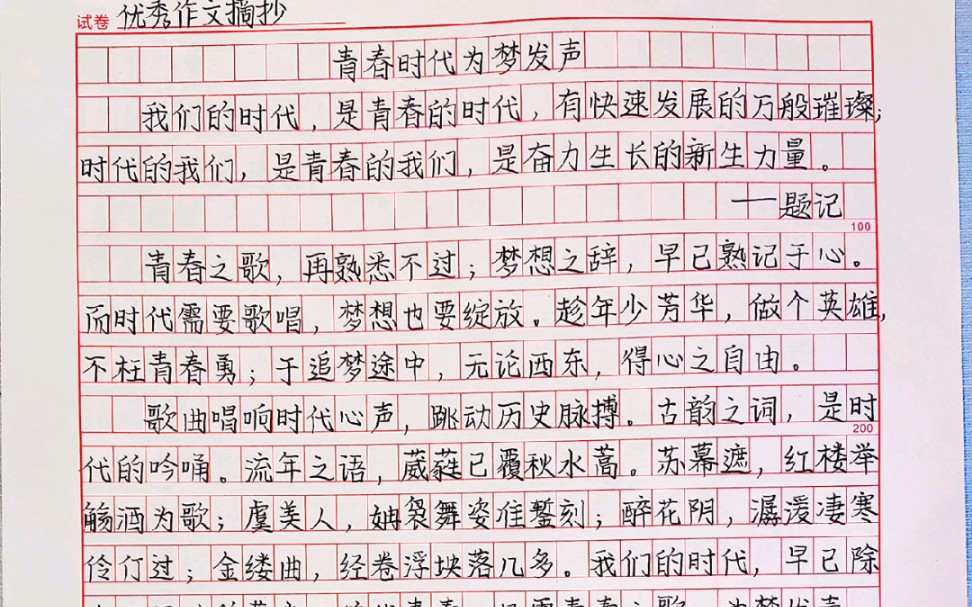 试卷 优秀作文摘抄
青春时代为梦发声
我们的时代，是青春的时代，有快速发展的万般璀璨；
时代的我们，是青春的我们，是奋力生长的新生力量。
——题记
100
青春之歌，再熟悉不过；梦想之辞，早已熟记于心。
而时代需要歌唱，梦想也要绽放。趁年少芳华，做个英雄，
不枉青春勇；于追梦途中，无论西东，得心之自由。
歌曲唱响时代心声，跳动历史脉搏。古韵之词，是时
200
代的吟诵。流年之语，葳蕤已覆秋水蒿。苏幕遮，红楼举
觞酒为歌；虞美人，婀袅舞姿准錾刻；醉花阴，潺湲凄寒
伶仃过；金缕曲，经卷浮埃落几多。我们的时代，早已除